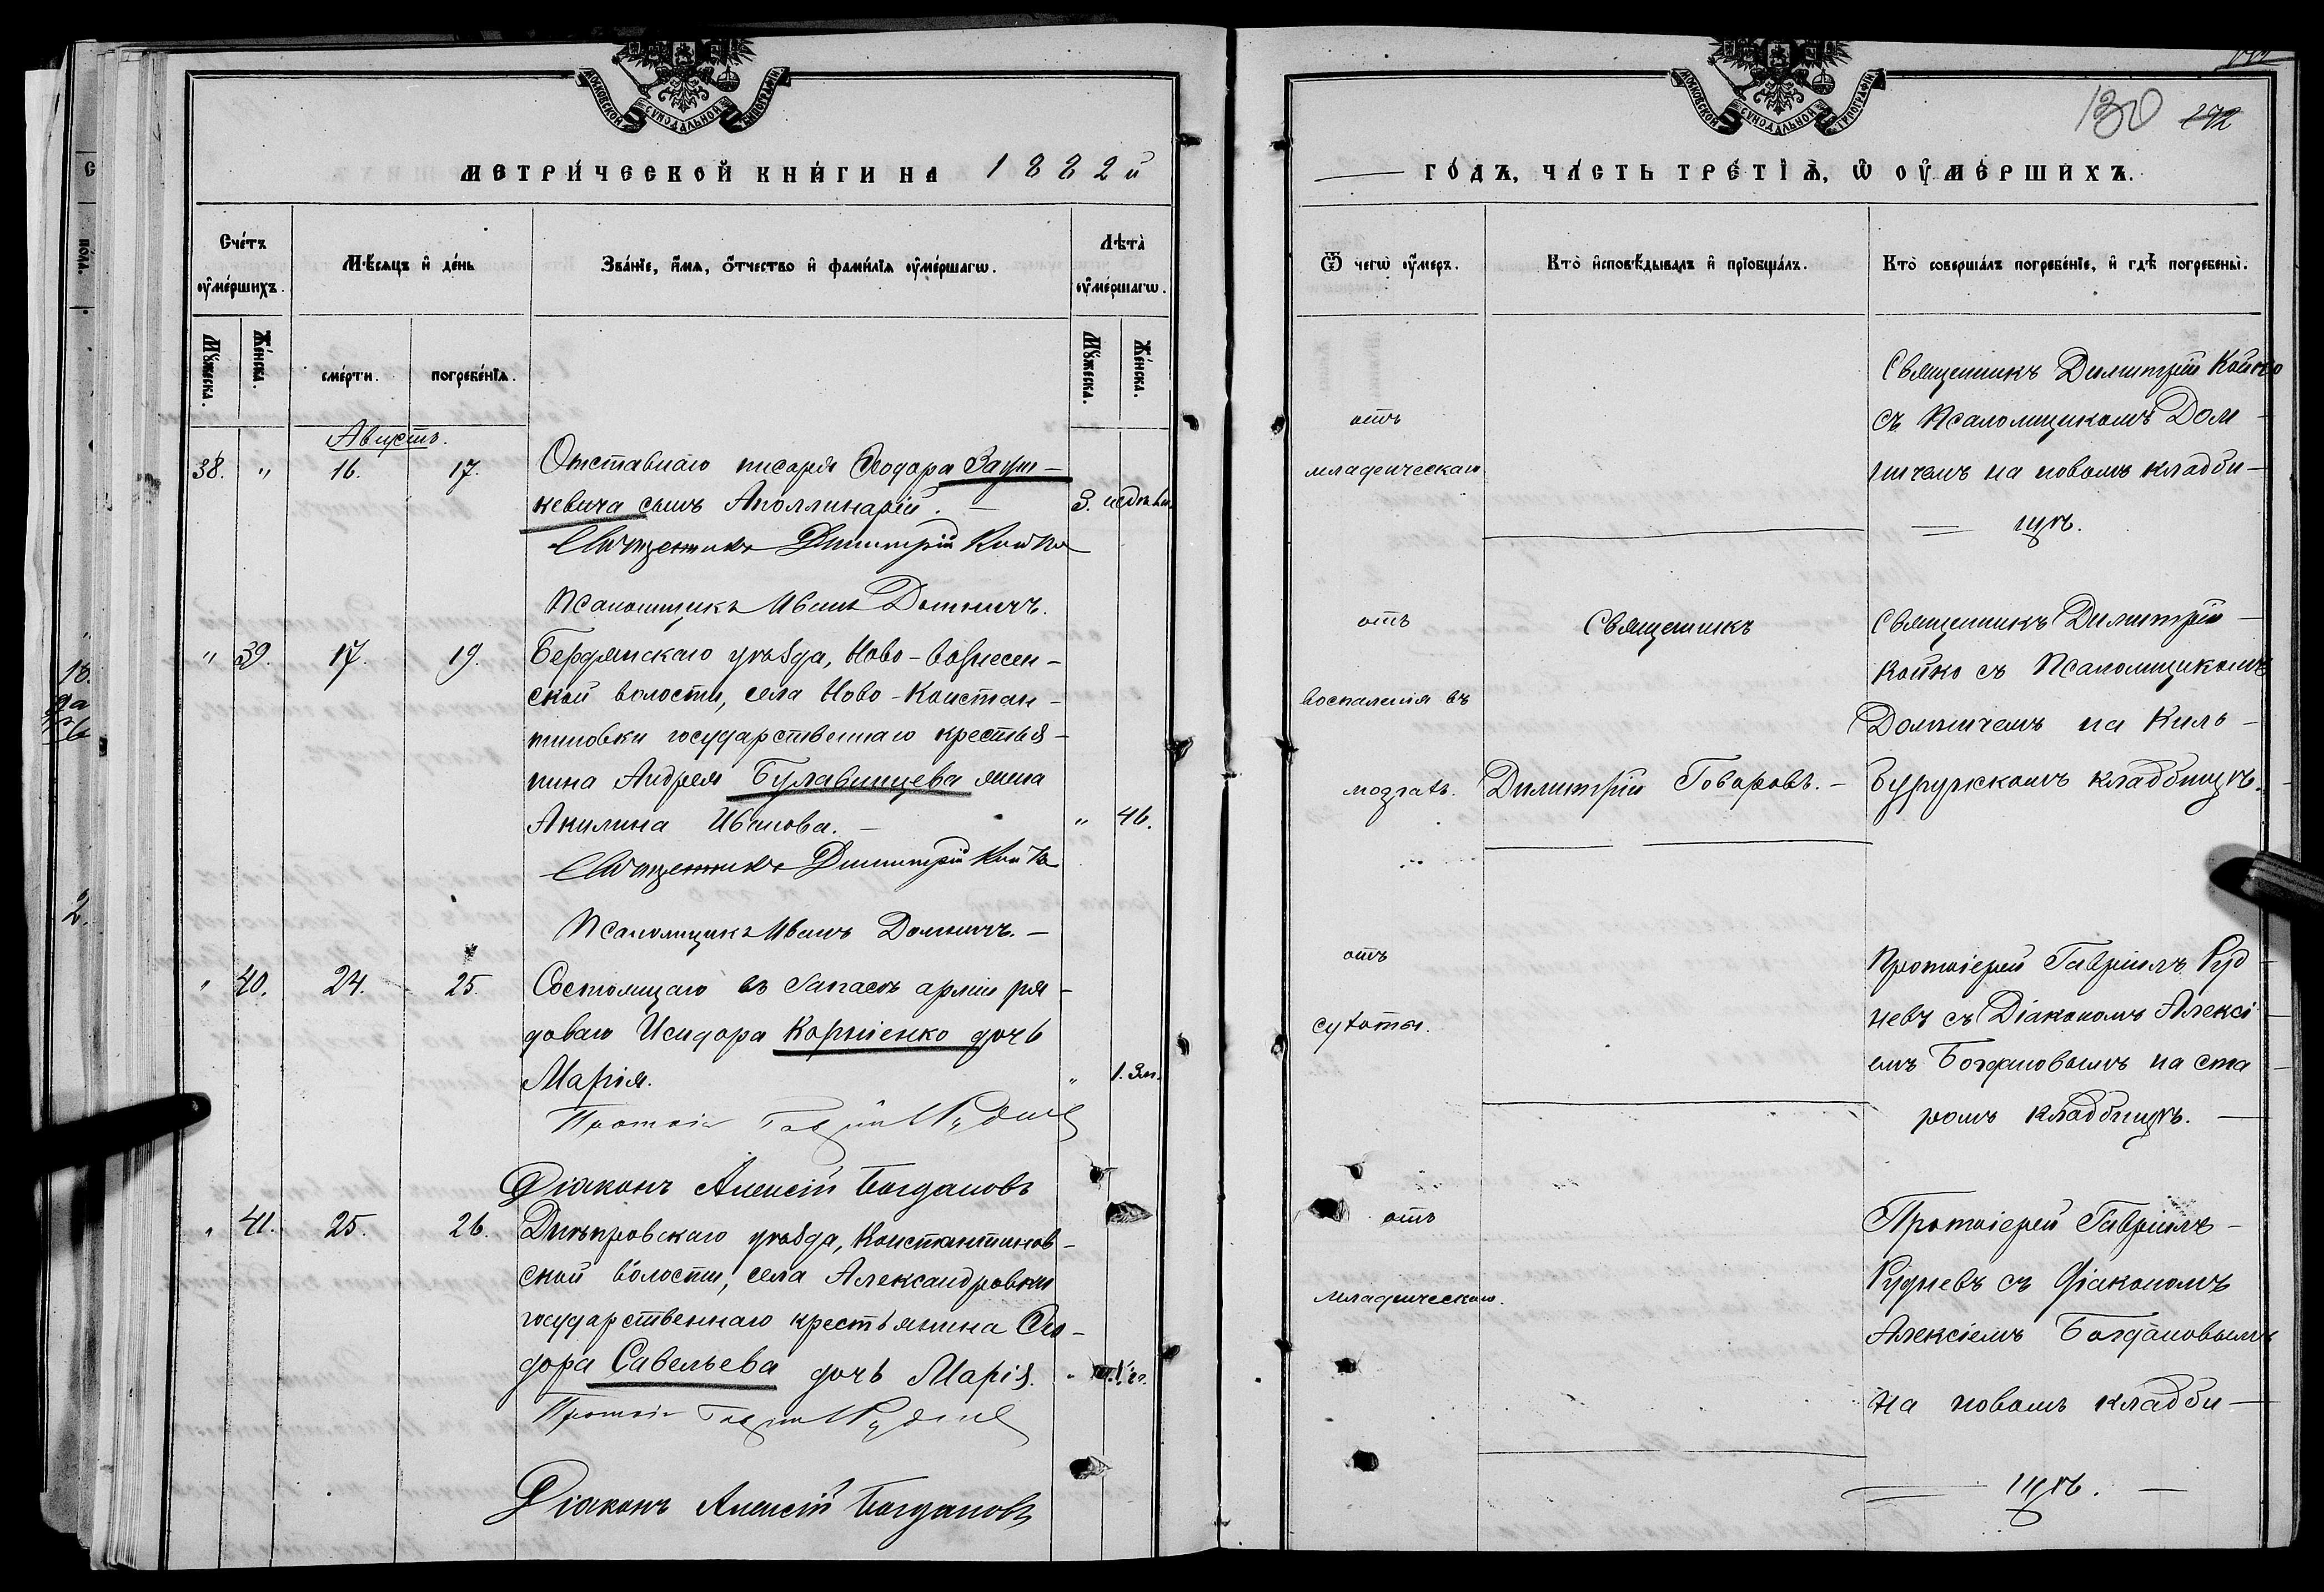 МОСКОВСКОЙ СѴНОДАЛЬНОЙ ТИПОГРАФІИ
МЕТРИ́ЧЕСКОЙ КНИ́ГИ НА 1882й
Сче́тъ ᲂу҆ме́ршихъ.
Мѣ́сяцъ и҆ де́нь
Зва́нїе, и҆́мя, ѻ҆́тчество и҆ фами́лїя ᲂу҆ме́ршагѡ.
Лѣта̀ ᲂу҆ме́ршагѡ.
Мꙋ́жеска.
Же́нска.
сме́рти.
погребе́нїя.
Мꙋ́жеска.
Же́нска.
Августъ.
38. " 16. 17. Отставнаго писаря Ѳеодора Зауш-
кевича сынъ Аполлинарій. — 3. недѣли.
Священникъ Димитрій Койко
Псаломщикъ Иванъ Домничъ.
" 39. 17. 19. Бердянскаго уѣзда, Ново-вознесен-
ской волости, села Ново-Констан-
тиновки государственнаго крестья-
нина Андрея Булавинцева жена
Акилина Иванова. — " 46.
Священникъ Димитрій Койко
Псаломщикъ Иванъ Домничъ. —
" 40. 24. 25. Состоящаго въ запасѣ арміи ря-
доваго Исидора Корніенко дочь
Марія. " 1. 3м.
Протоіе Гавріил Руднев
Діаконъ Алексій Богдановъ
" 41. 25. 26. Днѣпровскаго уѣзда, Константинов-
ской волости, села Александровки
государственнаго крестьянина Ѳео-
дора Савельева дочь Марія. "
Протоіе Гавріил Руднев
Діаконъ Алексій Богдановъ
МОСКОВСКОЙ СѴНОДАЛЬНОЙ ТИПОГРАФІИ
130 272
— ГО́ДЪ, ЧА́СТЬ ТРЕ́ТЇѦ, Ѡ҆ ОУ҆МЕ́РШИХЪ.
Ѿ чегѡ̀ ᲂу҆́меръ.
Кто̀ и҆сповѣ́дывалъ и҆ прїобща́лъ.
Кто̀ соверша́лъ погребе́нїе, и҆ гдѣ̀ погребены̀.
отъ
младенческаго
Священникъ Димитрій Койко
съ Псаломщикомъ Дом-
ничемъ на новомъ кладби-
— щѣ.
отъ
воспаленія въ
мозгахъ.
Священникъ
Димитрій Говоровъ. —
Священникъ Димитрій —
Койко съ Псаломщикомъ
Домничемъ на Киль-
бурунскомъ кладбищѣ.
отъ
сухоты.
Протоіерей Гавріилъ Руд-
невъ съ Діакономъ Алексі-
емъ Богдановымъ на ста-
ромъ кладбищѣ. —
отъ
младенческаго.
Протоіерей Гавріилъ —
Рудневъ съ Діакономъ
Алексіемъ Богдановымъ
на новомъ кладби-
— щѣ. —